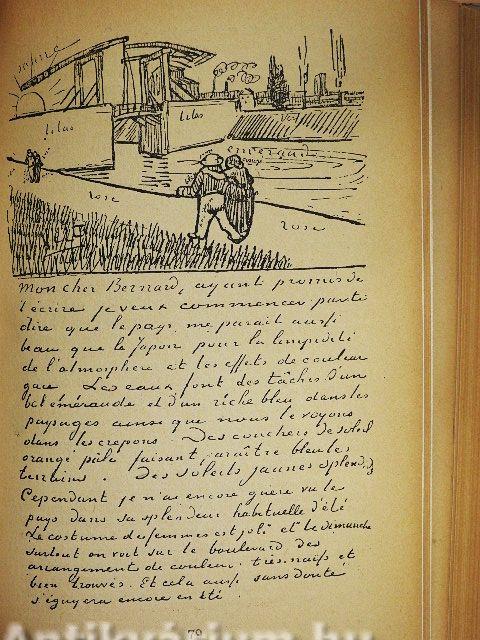 jaune
lilas
lilas
vert
emeraude
rose
rose
Mon cher Bernard, ayant promis de
t'écrire je veux commencer par te
dire que le pays me parait aussi
beau que le Japon pour la limpidité
de l'atmosphère et les effets de couleur
gaie. Les eaux font des tâches d'un
bel éméraude et d'un riche bleu dans les
paysages ainsi que nous le voyons
dans les crepons. Des couchers de soleil
orangé pâle faisant paraître bleu les
terrains. Des soleils jaunes splendides
Cependant je n'ai encore guère vu le
pays dans sa splendeur habituelle d'été
Le costume des femmes est joli et le dimanche
surtout on voit sur le boulevard des
arrangements de couleur très naifs et
bien trouvés. Et cela aussi sans doute
s'égayera encore en été.
79
Antikvárium.hu